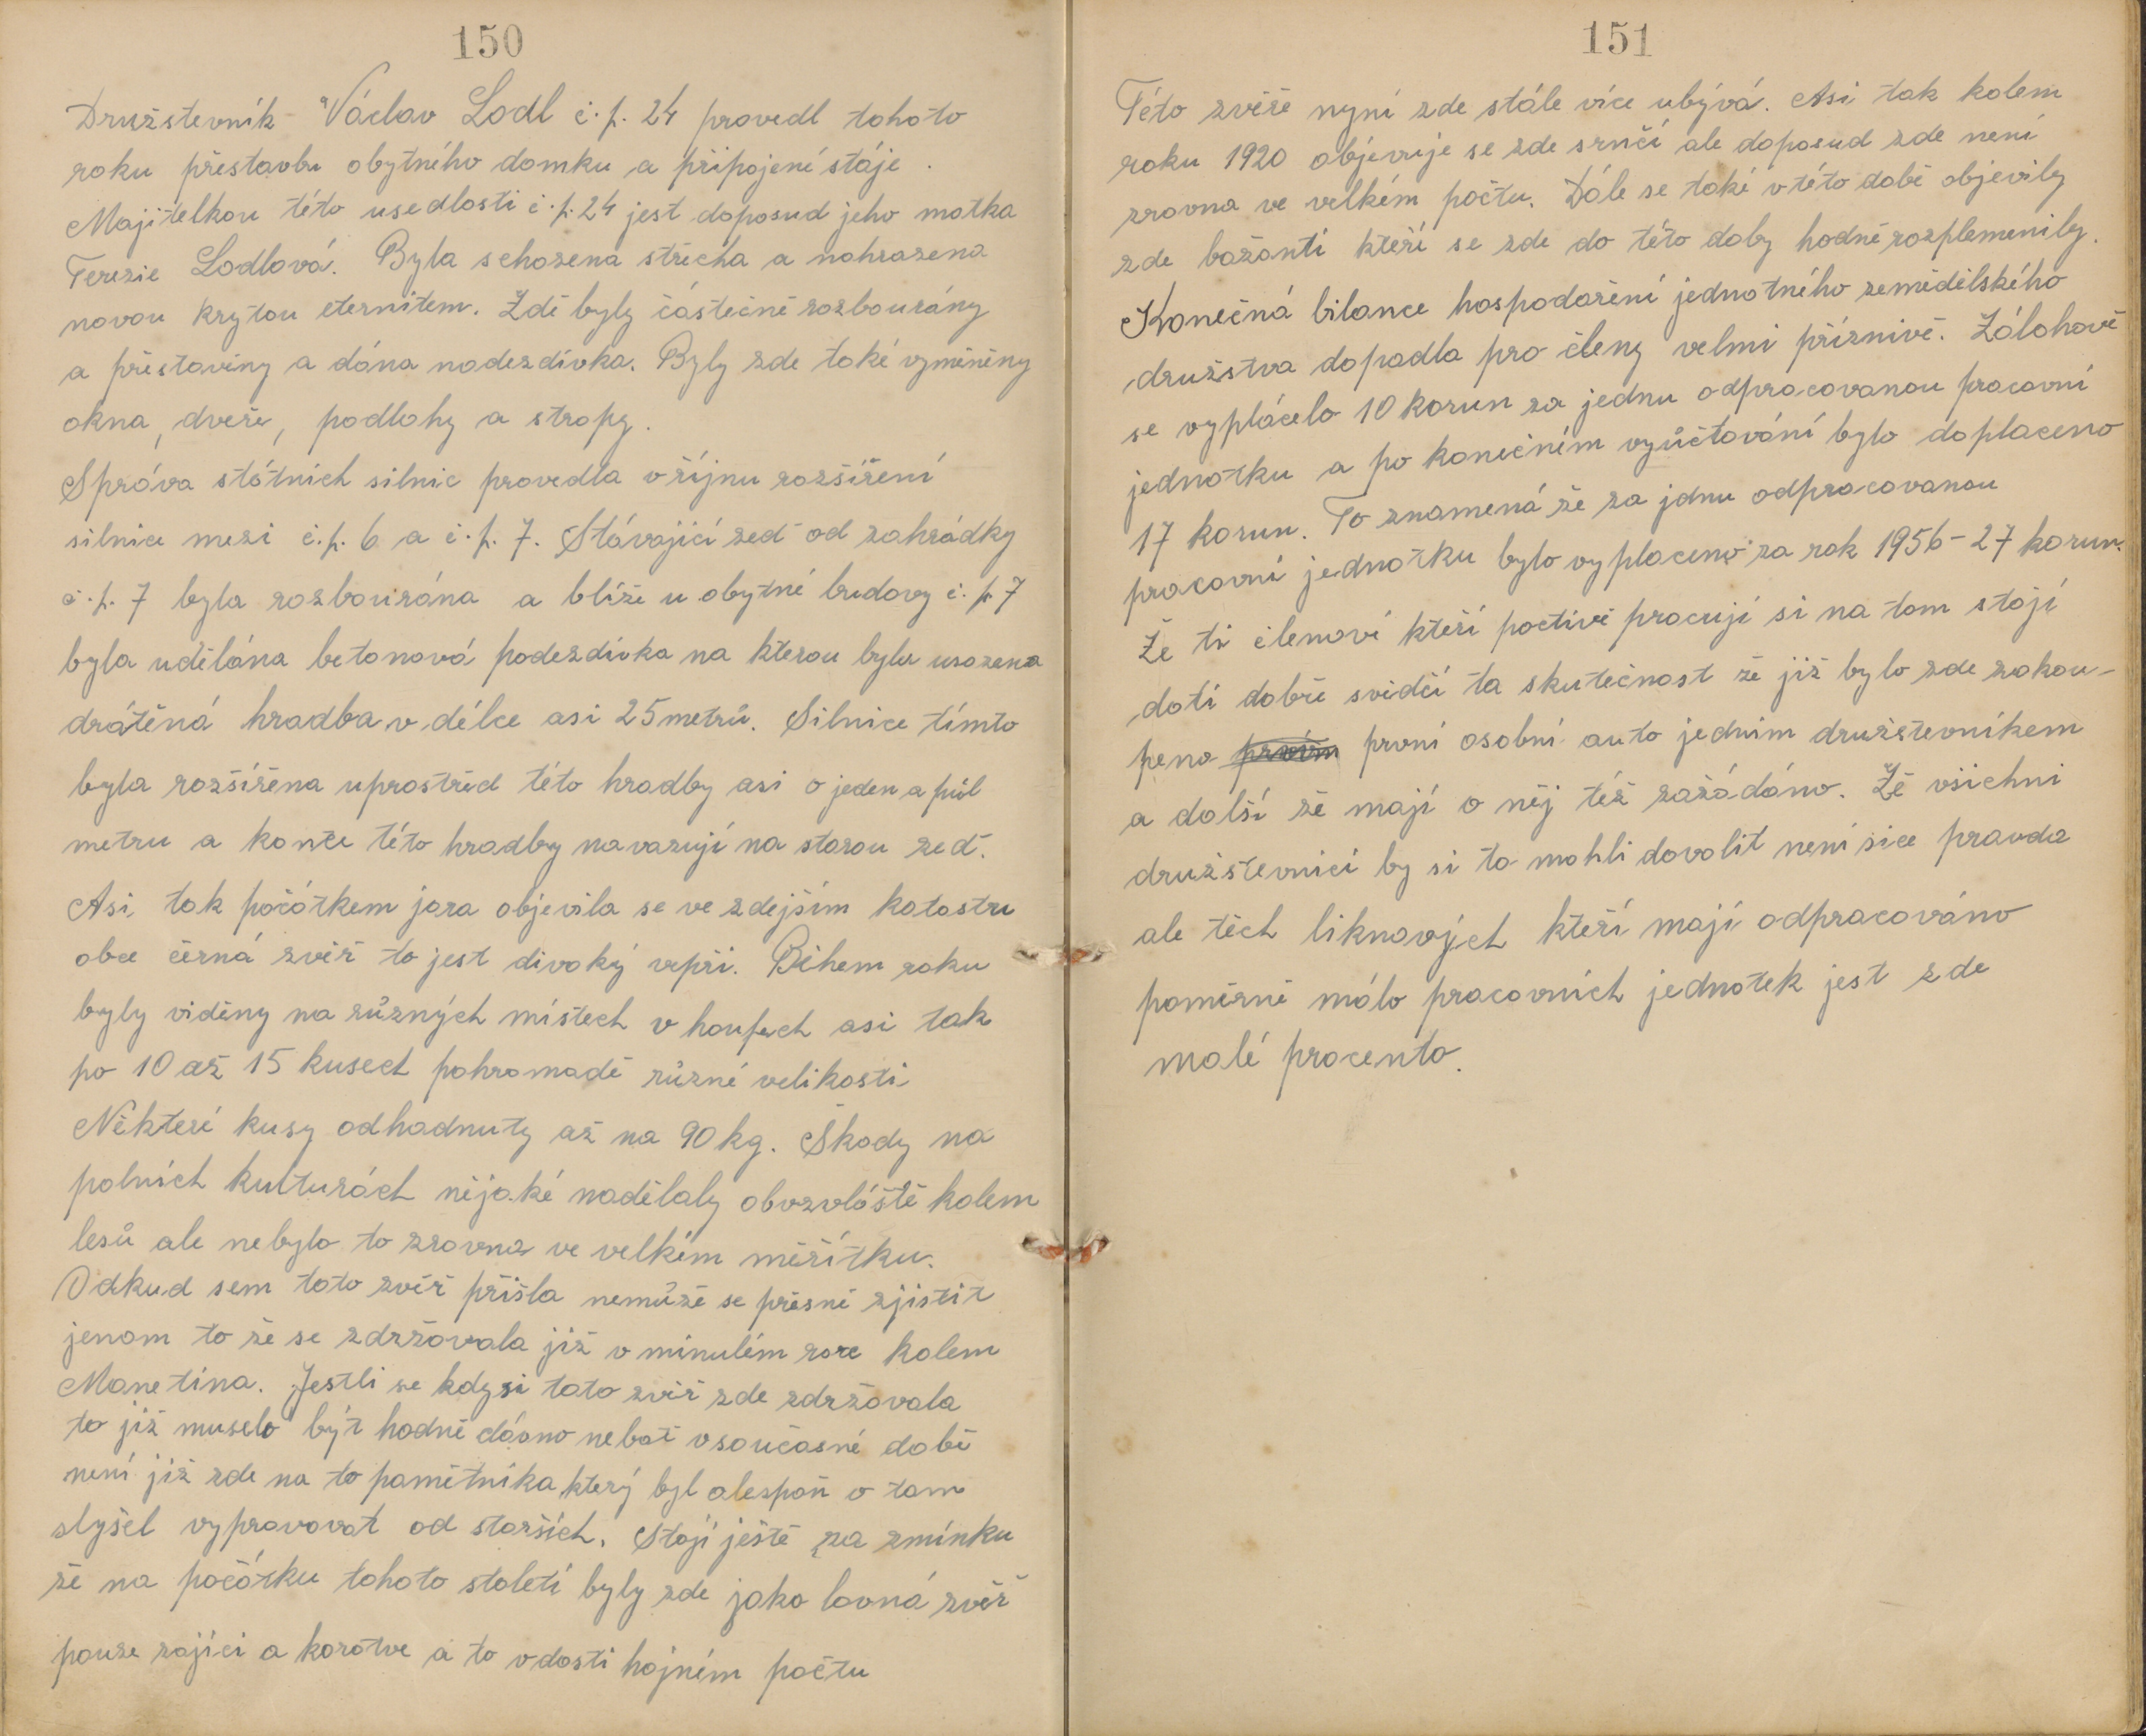 150
Družstevník Václav Lodl č.p. 24 provedl tohoto
roku přestavbu obytného domku a připojené stáje.
Majitelkou této usedlosti č.p. 24 jest doposud jeho matka
Terezie Lodlová. Byla schozena střecha a nahrazena
novou krytou eternitem. Zdě byly částečně rozbourány
a přestavěny a dána nadezdívka. Byly zde také vyměněny
okna, dveře, podlahy a stropy.
Správa státních silnic provedla v říjnu rozšíření
silnice mezi č.p. 6 a č.p. 7. Stávající zeď od zahrádky
č.p. 7 byla rozbourána a blíže u obytné budovy č.p. 7
byla udělána betonová podezdívka na kterou byla usazena
drátěná hradba v délce asi 25 metrů. Silnice tímto
byla rozšířena uprostřed této hradby asi o jeden a půl
metru a konce této hradby navazují na starou zeď.
Asi tak počátkem jara objevila se ve zdejším katastru
obce černá zvěř to jest divoký vepři. Během roku
byly viděny na různých místech v houfech asi tak
po 10 až 15 kusech pohromadě různé velikosti
Některé kusy odhadnuty až na 90 kg. Škody na
polních kulturách nějaké nadělaly obvzvláště kolem
lesů ale nebylo to zrovna ve velkém měřítku.
Odkud sem tato zvěř přišla nemůže se přesně zjistit
jenom to že se zdržovala již v minulém roce kolem
Manetína. Jestli se kdysi tato zvěř zde zdržovala
to již muselo být hodně dávno neboť v současné době
není již zde na to pamětníka který byl alespoň o tom
slyšel vypravovat od starších. Stojí ještě za zmínku
že na počátku tohoto století byly zde jako lovná zvěř
pouze zajíci a korotve a to v dosti hojném počtu
151
Této zvěře nyní zde stále více ubývá. Asi tak kolem
roku 1920 objevuje se zde srnčí ale doposud zde není
zrovna ve velkém počtu. Dále se také v této době objevily
zde bažanti kteří se zde do této doby hodně rozplemenily.
Konečná bilance hospodaření jednotného zemědělského
družstva dopadla pro členy velmi příznivě. Zálohově
se vyplácelo 10 korun za jednu odpracovanou pracovní
jednotku a po konečném vyůčtování bylo doplaceno
17 korun. To znamená že za jdnu odpracovanou
pracovní jednotku bylo vyplaceno za rok 1956 - 27 korun.
Že ti členové kteří poctivě pracují si na tom stojí
dotí dobře svědčí ta skutečnost že již bylo zde zakou-
peno první osobní auto jedním družstevníkem
a další že mají o něj též zažádáno. Že všichni
družstevníci by si to mohli dovolit není sice pravda
ale těch liknavých kteří mají odpracováno
poměrně málo pracovních jednotek jest zde
malé procento.